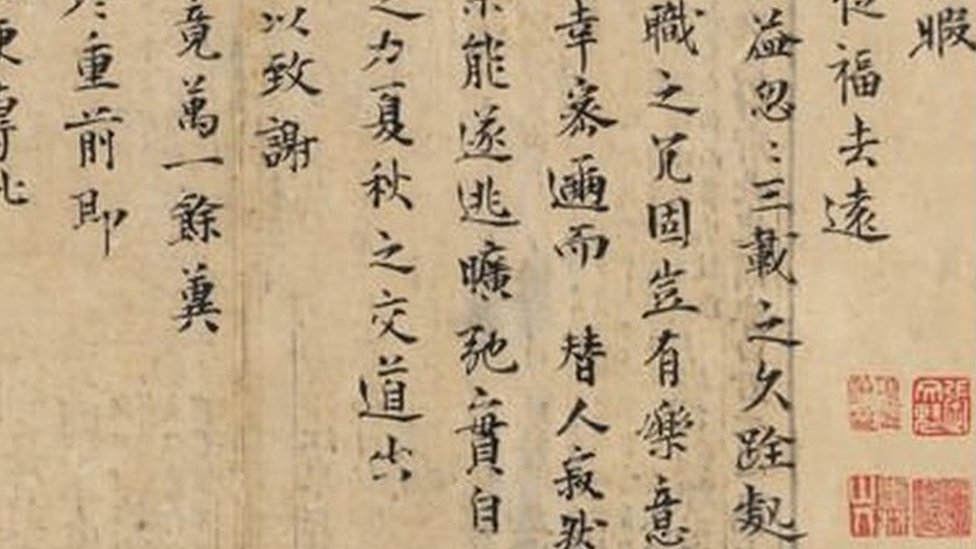 暇
福去遠
益忽〻三載之久跧處
職之冗固豈有樂意
幸密邇而 替人寂然
果能遂逃曠弛實自
之力夏秋之交道出
以致謝
竟萬一餘冀
重前即